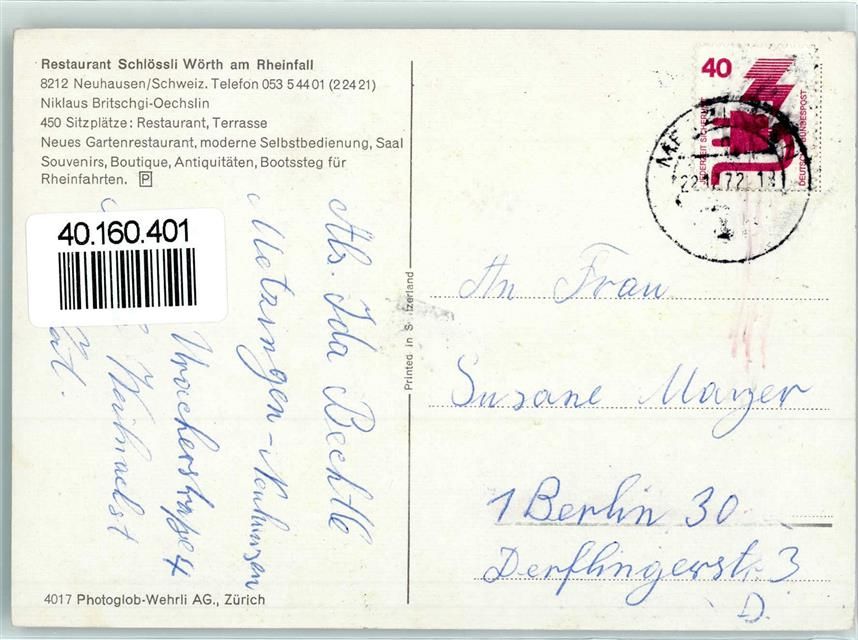 Restaurant Schlössli Wörth am Rheinfall
8212 Neuhausen/Schweiz. Telefon 053 5 44 01 (2 24 21)
Niklaus Britschgi-Oechslin
450 Sitzplätze: Restaurant, Terrasse
Neues Gartenrestaurant, moderne Selbstbedienung, Saal
Souvenirs, Boutique, Antiquitäten, Bootssteg für
Rheinfahrten. P
40.160.401
Abs. Ida Bechtle
Metzingen-Neuhausen
Uracherstraße 4
Weihnachst
4017 Photoglob-Wehrli AG., Zürich
Printed in Switzerland
40
JEDERZEIT SICHERHEIT
DEUTSCHE BUNDESPOST
72
An Frau
Susane Mayer
1 Berlin 30
Derflingerstr. 3
D.